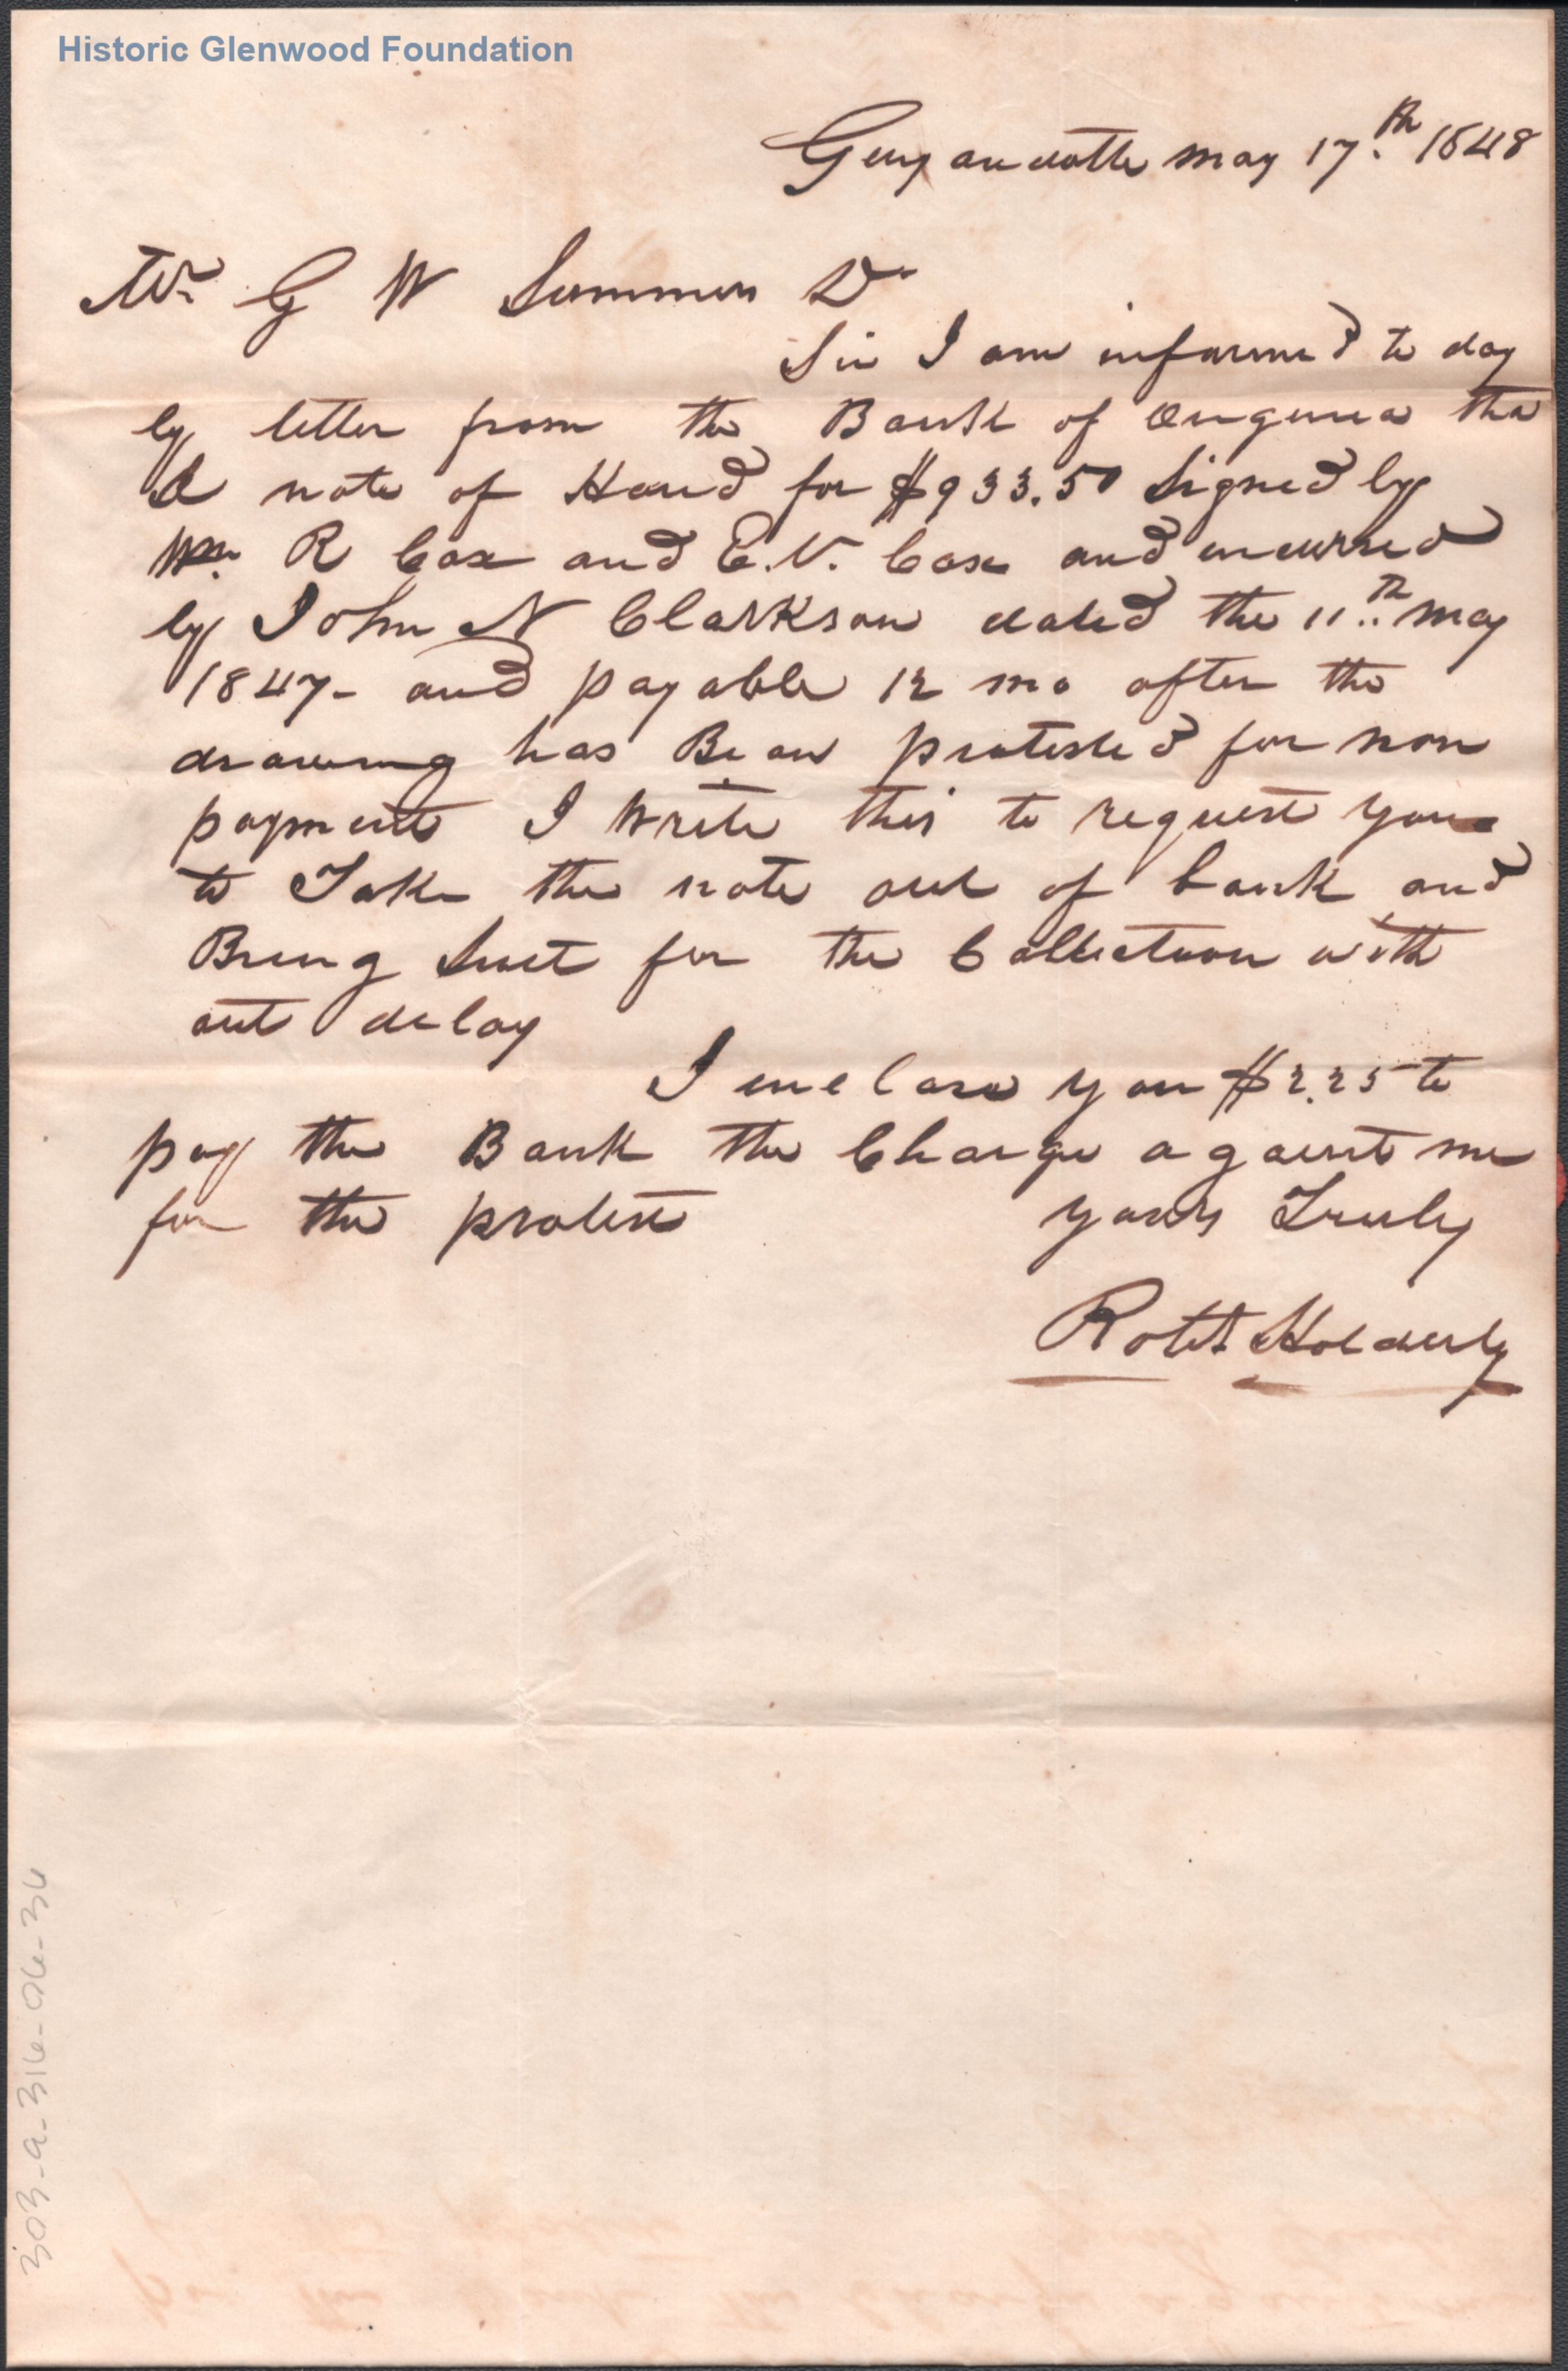 Historic Glenwood Foundation
Guyandotte may 17.th 1848
Mr G W Summers Dr
Sir I am informed to day
by letter from the Bank of Virginia tha
A note of Hand for $933.50 Signed by
Wm R Cox and E.V. Cox and
by John N Clarkson dated the 11..th may
1847- and payable 12 mo after the
drawing has Bean protested for non
payment I Write this to request you
to Take the note out of bank and
Bring Suit for the Collection with
out delay
I enclose you $2.25 to
pay the Bank the Charge against me
for the protest yours Truly
Robt Holderby
303-a-316-06-36